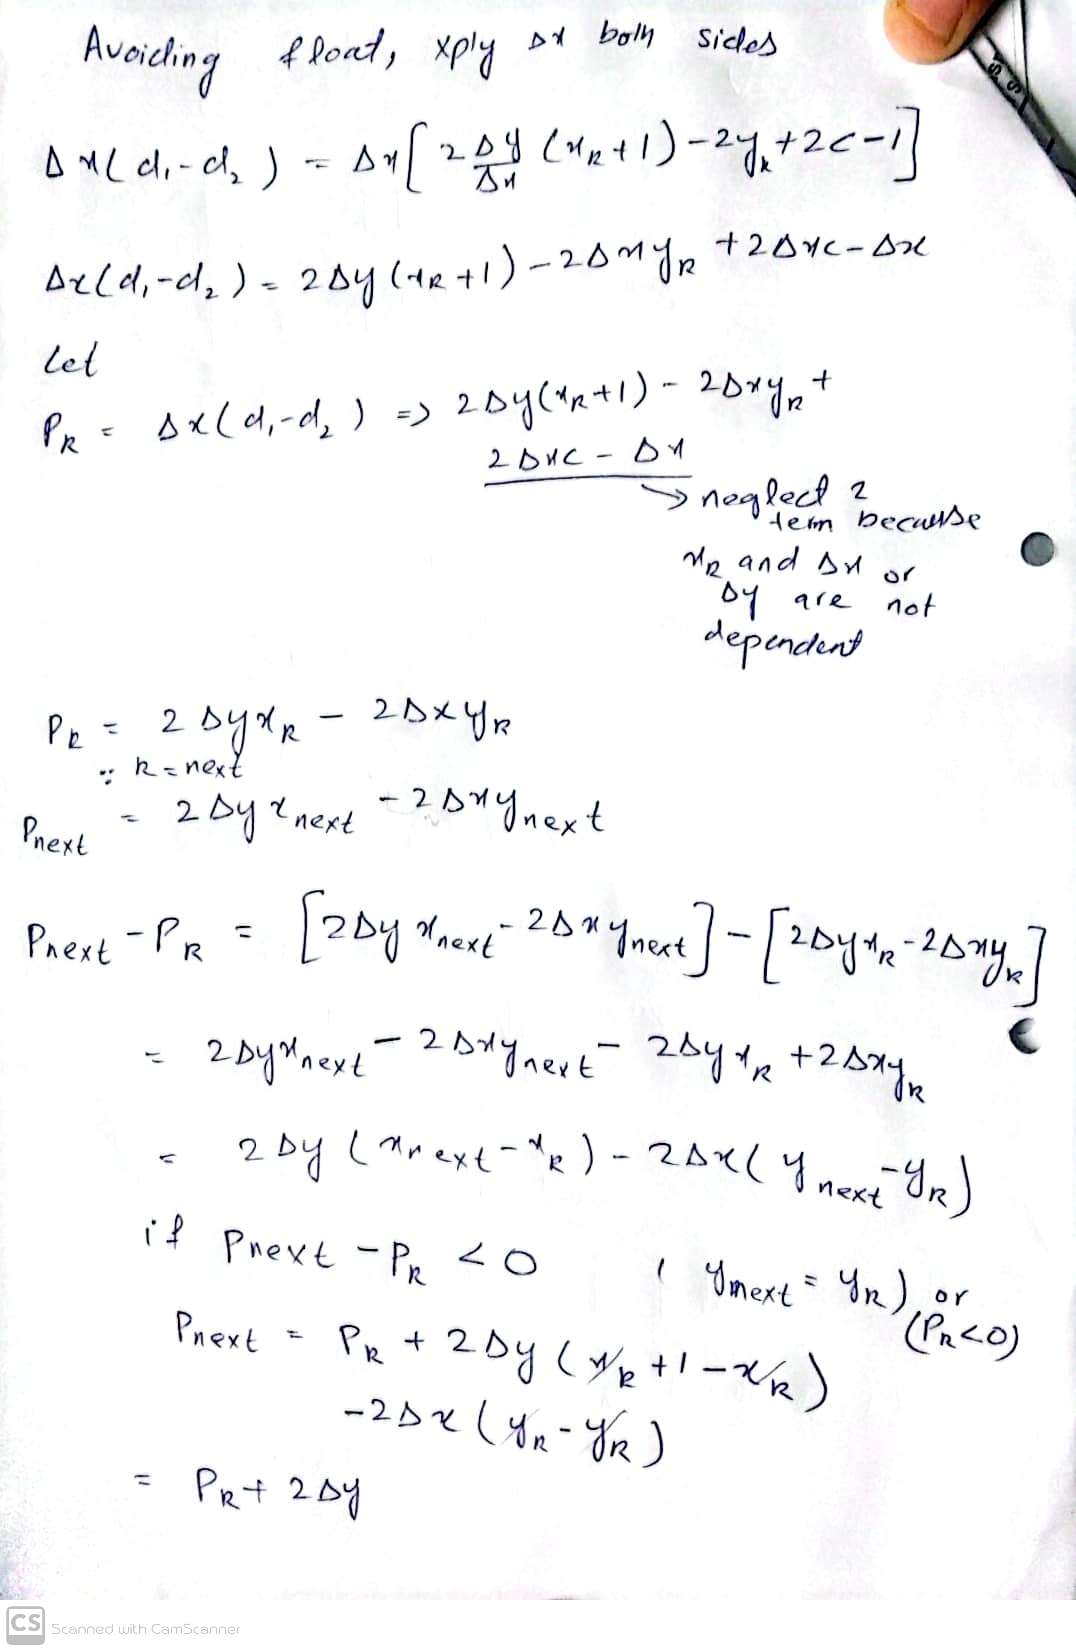 Avoiding float, xply Δx both sides
Δx(d₁-d₂) = Δx[2 Δy/Δx (xₖ+1)-2yₖ+2c-1]
Δx(d₁-d₂) = 2Δy(xₖ+1)-2Δxyₖ+2Δxc-Δx
Let
Pₖ = Δx(d₁-d₂) => 2Δy(xₖ+1)-2Δxyₖ+
2Δxc - Δx
→ neglect 2
term because
xₖ and Δx or
Δy are not
dependent
Pₖ = 2Δyxₖ - 2Δxyₖ
∵ k = next
Pnext = 2Δyxnext - 2Δxynext
Pnext - Pₖ = [2Δyxnext - 2Δxynext] - [2Δyxₖ - 2Δxyₖ]
= 2Δyxnext - 2Δxynext - 2Δyxₖ + 2Δxyₖ
= 2Δy(xnext - xₖ) - 2Δx(ynext - yₖ)
if Pnext - Pₖ < 0 (ynext = yₖ) or
(Pₖ<0)
Pnext = Pₖ + 2Δy(xₖ+1-xₖ)
-2Δx(yₖ-yₖ)
= Pₖ + 2Δy
CS Scanned with CamScanner